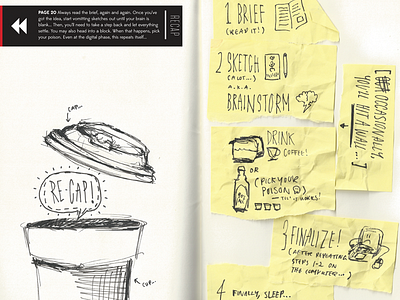 PAGE 20 Always read the brief, again and again. Once you've
got the idea, start vomiting sketches out until your brain is
blank... Then, you'll need to take a step back and let everything
settle. You may also head into a block. When that happens, pick
your poison. Even at the digital phase, this repeats itself...
RECAP
CAP...
RE-CAP!
CUP...
1 BRIEF
(READ IT!)
2 SKETCH
(A LOT...)
A.K.A.
BRAINSTORM
[## OCCASIONALLY
YOU'RE HIT A WALL...]
DRINK
COFFEE!
OR
(PICK YOUR
POISON)
'TIL IT WORKS!
3 FINALIZE!
(AFTER REPEATING
STEPS 1-2 ON
THE COMPUTER...)
4 FINALLY, SLEEP...